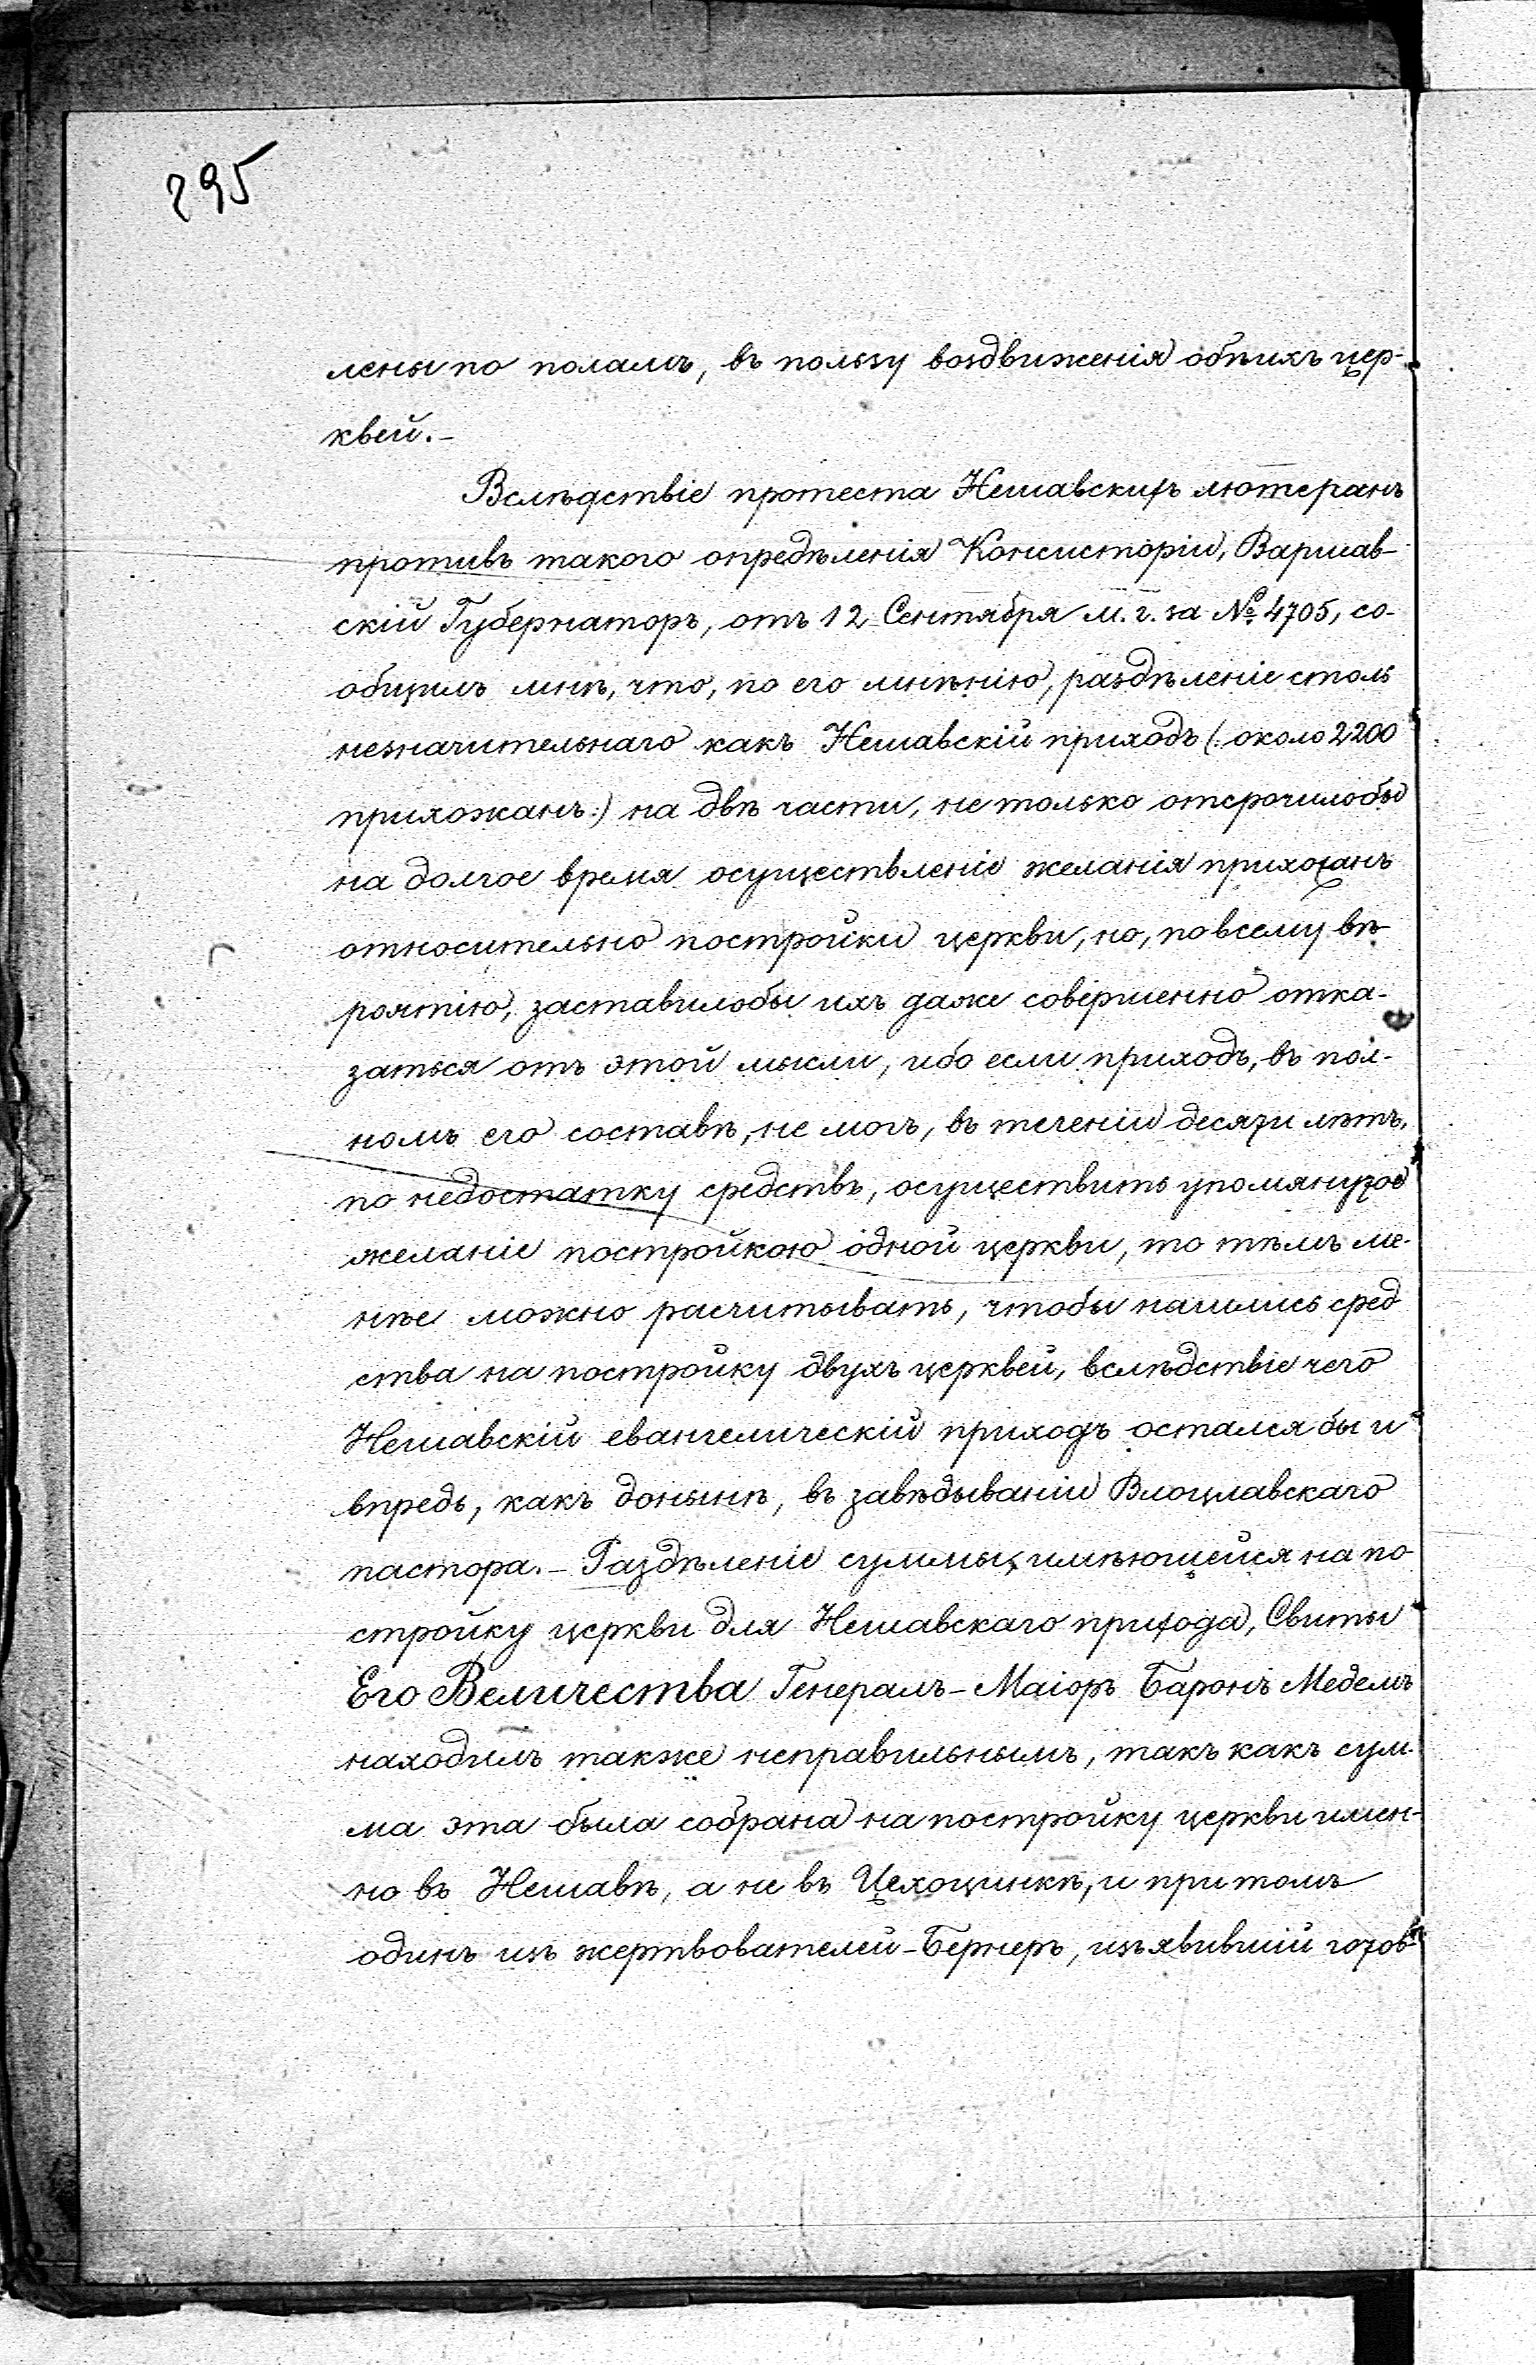 295
лены по поламъ, въ пользу воздвиженія обѣихъ цер-
квей.-
Вслѣдствіе протеста Нешавскихъ лютеранъ
противъ такого опредѣленія Консисторіи, Варшав-
скій Губернаторъ, отъ 12 Сентября м. г. за № 4705, со-
общилъ мнѣ, что, по его мнѣнію, раздѣленіе столь
незначительнаго какъ Нешавскій приходъ (: около 2200
прихожанъ:) на двѣ части, не только отсрочилобы
на долгое время осуществленіе желанія прихожанъ
относительно постройки церкви, но, по всему вѣ-
роятію, заставилобы ихъ даже совершенно отка-
заться отъ этой мысли, ибо если приходъ, въ пол-
номъ его составѣ, не могъ, въ теченіи десяти лѣтъ,
по недостатку средствъ, осуществить упомянутое
желаніе постройкою одной церкви, то тѣмъ ме-
нѣе можно расчитывать, чтобы нашлись сред
ства на постройку двухъ церквей, вслѣдствіе чего
Нешавскій евангелическій приходъ остался бы и
впредь, какъ донынѣ, въ завѣдываніи Влоцлавскаго
пастора.- Раздѣленіе суммы, имѣющейся на по-
стройку церкви для Нешавскаго прихода, Свиты
Его Величества Генералъ-Маіоръ Баронъ Медемъ
находилъ также неправильнымъ, такъ какъ сум-
ма эта была собрана на постройку церкви имен-
но въ Нешавѣ, а не въ Цехоцинкѣ, и притомъ
одинъ изъ жертвователей-Бернеръ, изъявившій готов-